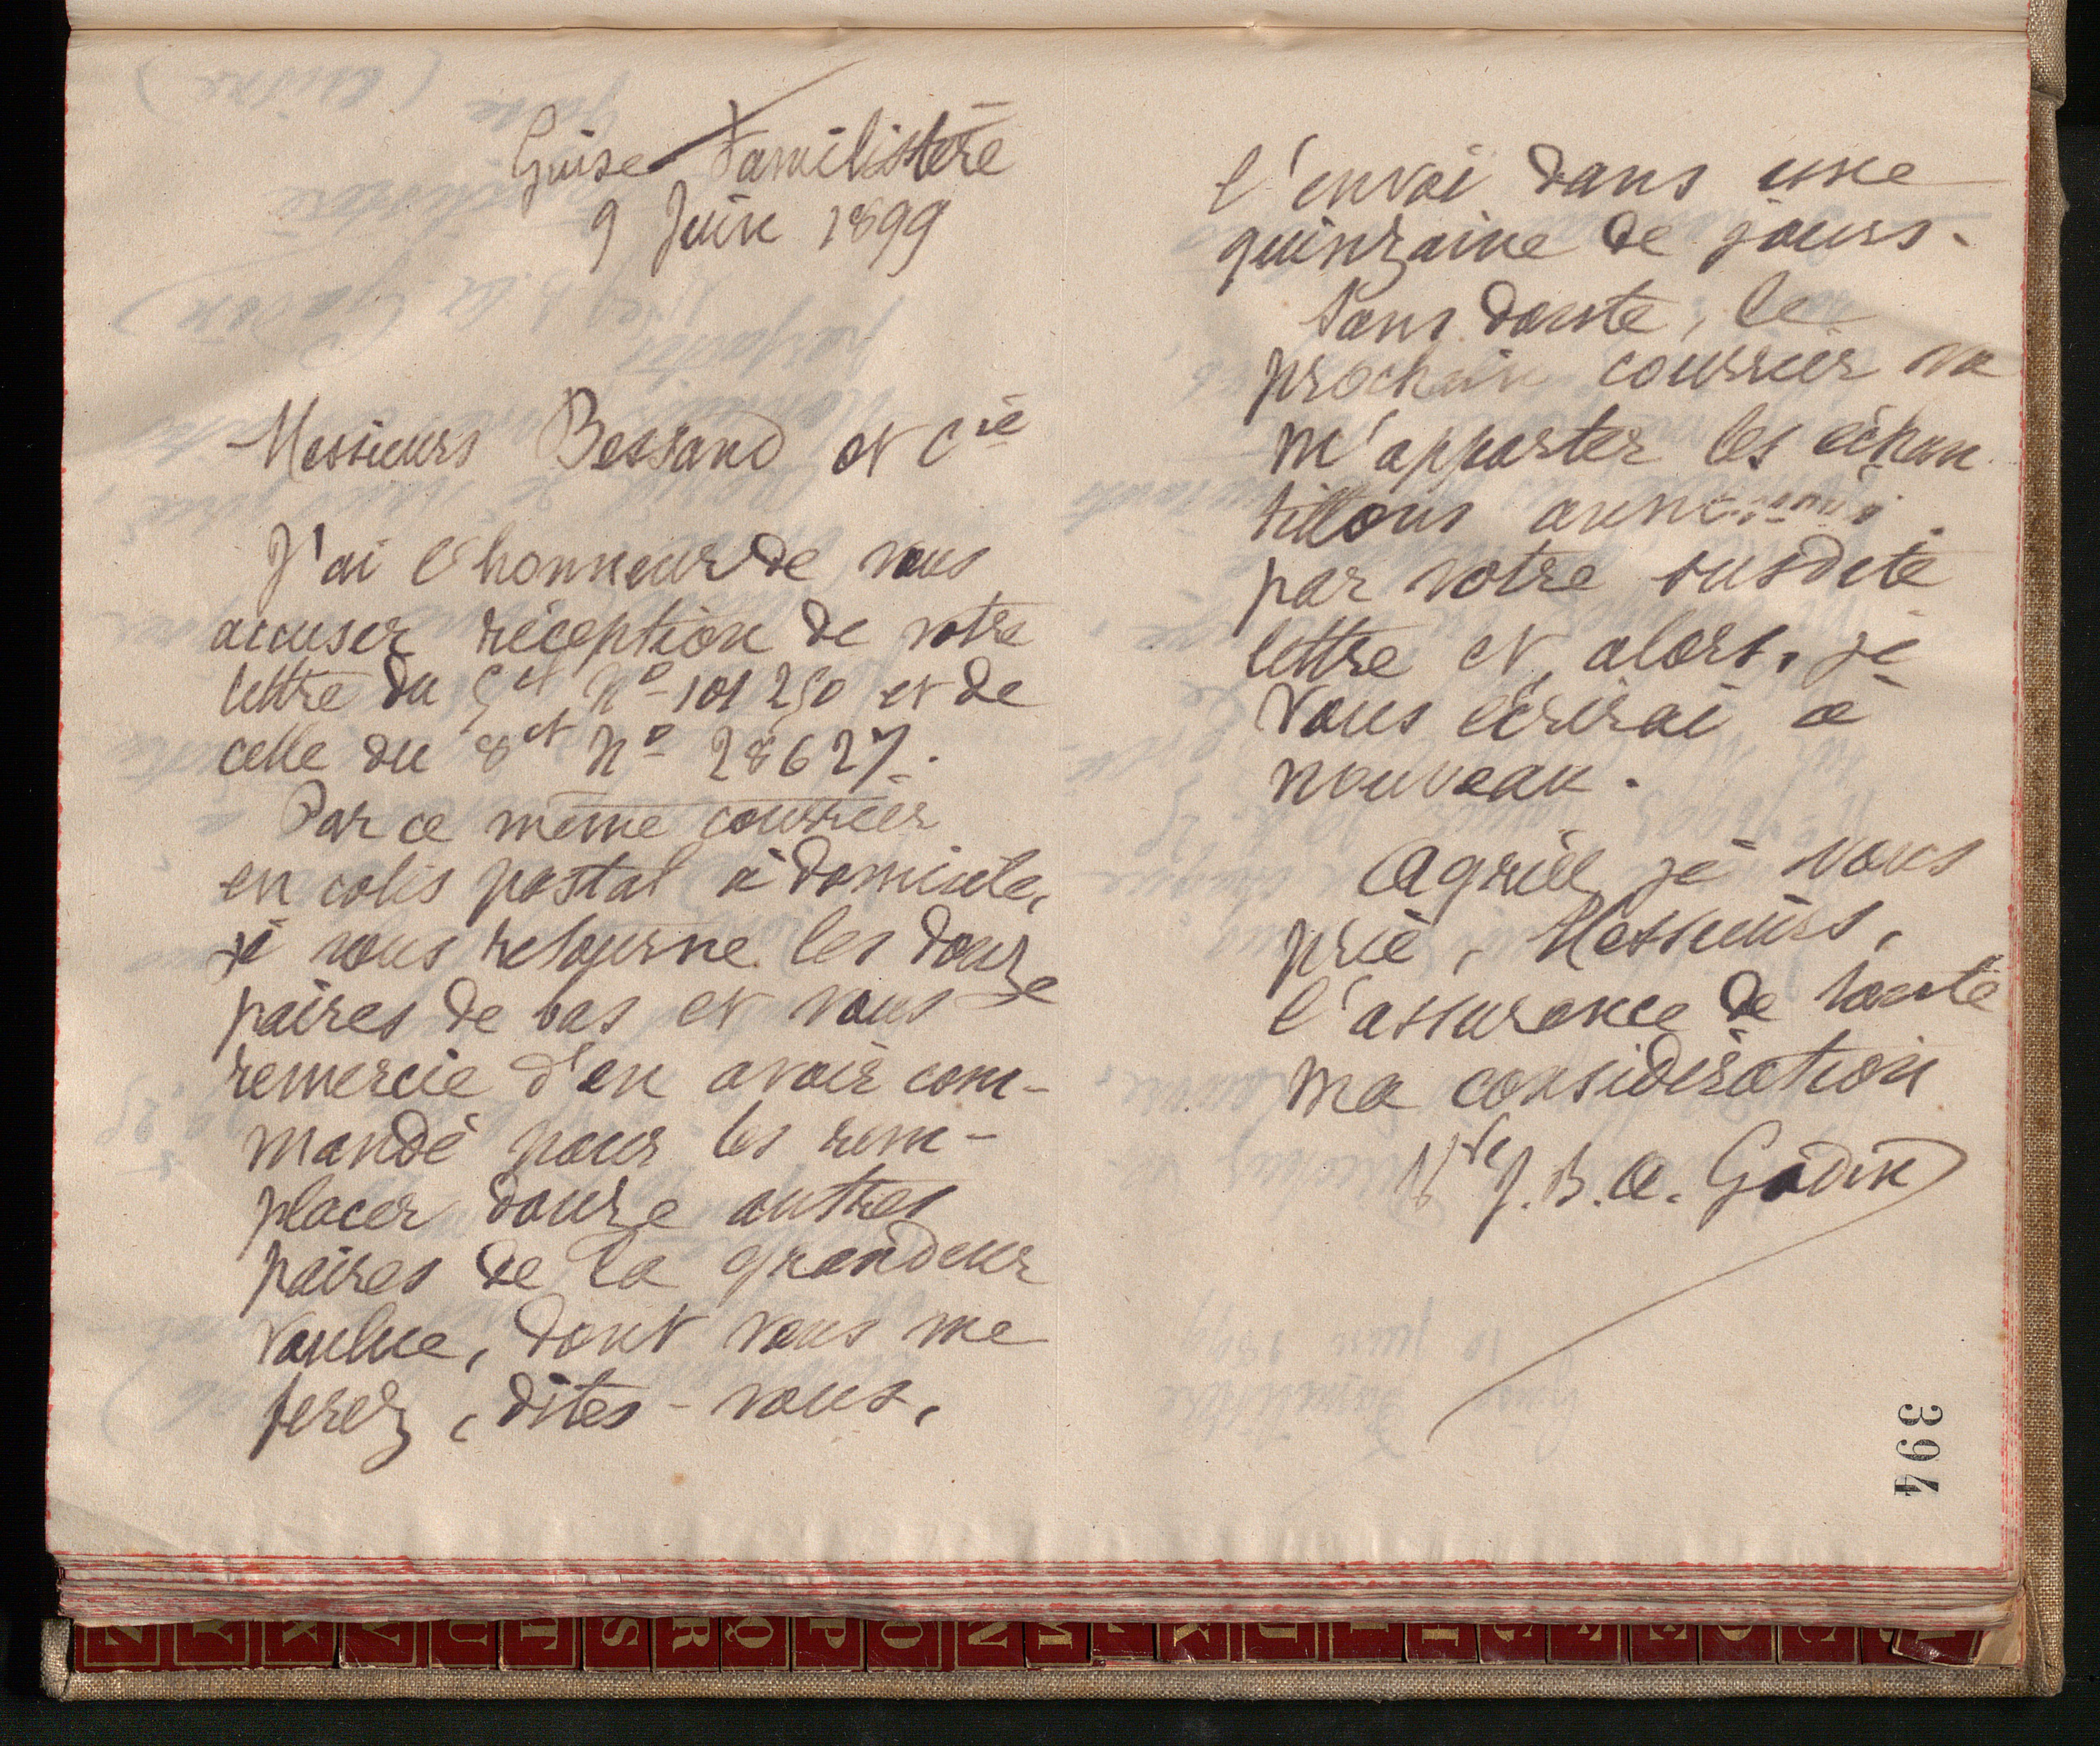 Guise Familistère
9 Juin 1899
Messieurs Bessand et Cie
J'ai l'honneur de vous
accuser réception de votre
lettre du 5 ct No 101250 et de
celle du 8 ct No 28627.
Par ce même courrier
en colis postal à domicile,
je vous retourne les douze
paires de bas et vous
remercie d'en avoir com-
mandé pour les rem-
placer douze autres
paires de la grandeur
voulue, dont vous me
ferez, dites-vous,
l'envoi dans une
quinzaine de jours.
Sans doute, le
prochain courrier va
m'apporter les échan
tillons annoncés
par votre susdite
lettre et, alors, je
vous écrirai à
nouveau.
Agréez, je vous
prie, Messieurs,
l'assurance de toute
ma considération
Vve J. B. A. Godin
394
Z Y X V U T S R Q P O N M L K J I H G F E D C B